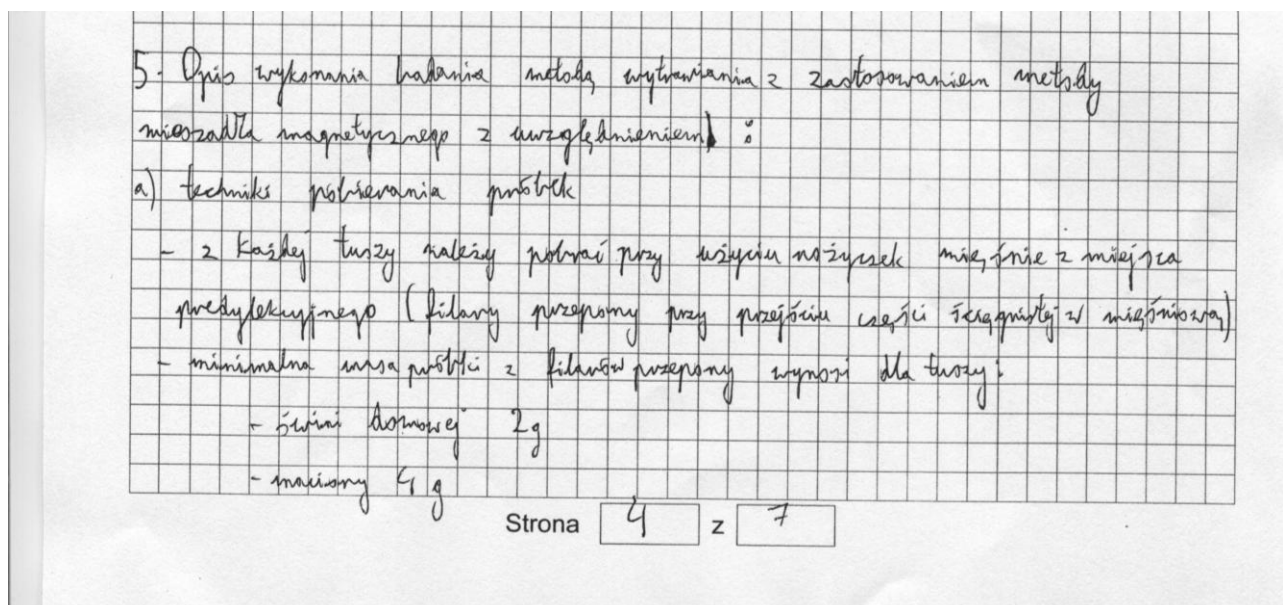 5. Opis wykonania badania metodą wytrawiania z zastosowaniem metody
mieszadła magnetycznego z uwzględnieniem :
a) techniki pobierania próbek
- z każdej tuszy należy pobrać przy użyciu nożyczek mięśnie z miejsca
predylekcyjnego (filary przepony przy przejściu części ścięgnistej w mięśniową)
- minimalna masa próbki z filarów przepony wynosi dla tuszy:
- świni domowej 2g
- maciory 4 g
Strona 4 z 7